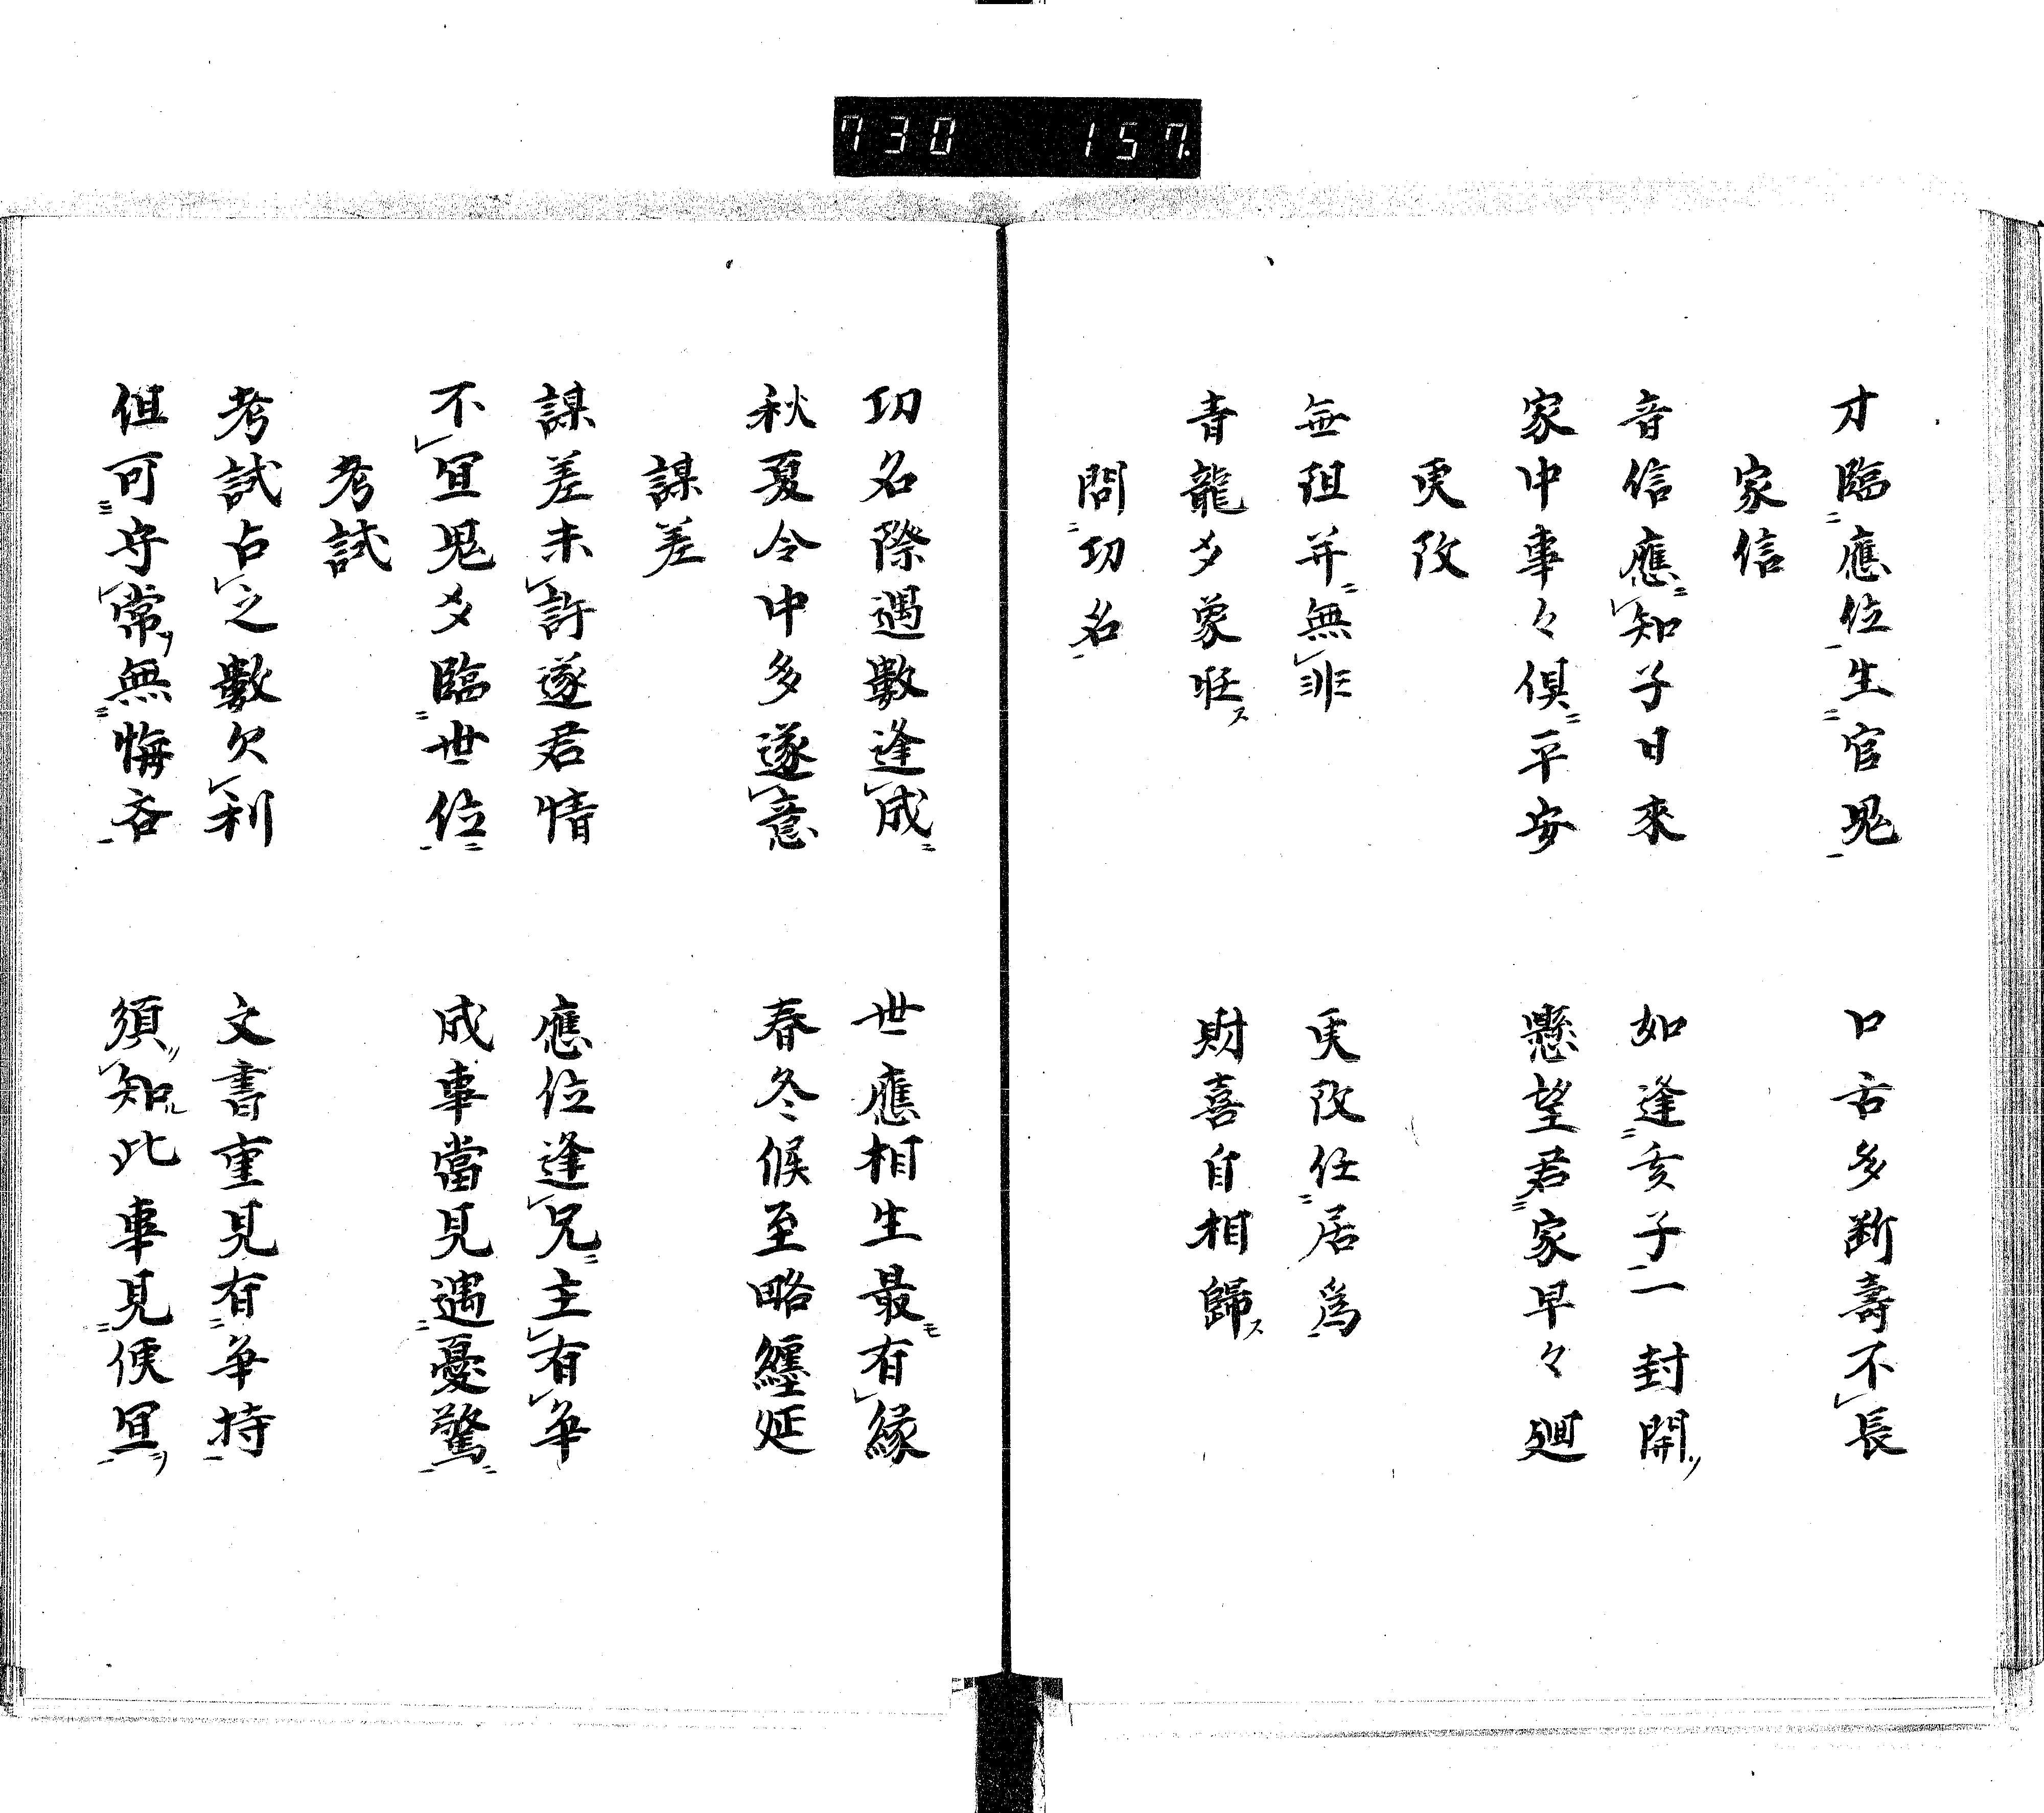 730 157
才臨應位生官鬼 口舌多断壽不長
家信
音信應知子日來 如逢亥子一封開
家中事々俱平安 懸望君家早々廻
更改
無阻并無非 更改任居爲
青龍爻象旺 財喜自相歸
問功名
功名際遇數逢成 世應相生最有縁
秋夏令中多遂意 春冬候至略纏延
謀差
謀差未許遂君情 應位逢兄主有争
不宜鬼爻臨世位 成事當見遇憂驚
考試
考試占之數欠利 文書重見有争持
但可守常無悔吝 須知此事見便宜